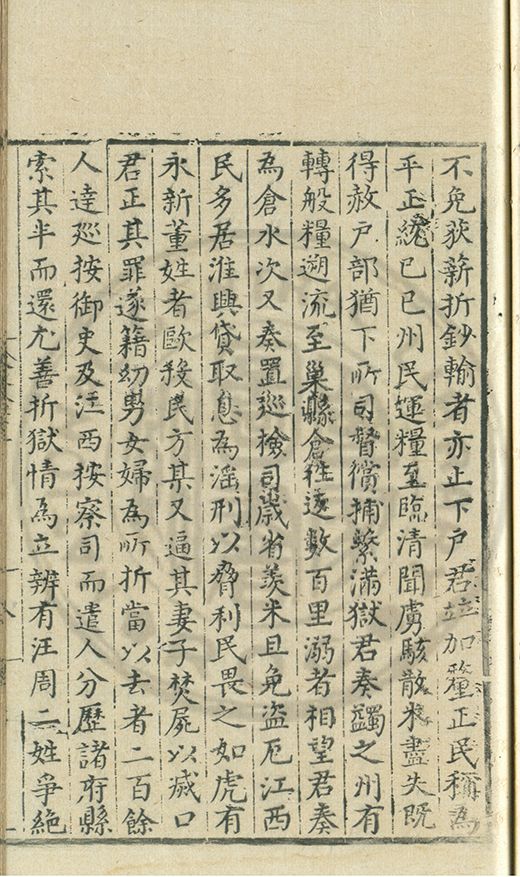 不免荻薪折鈔輸者亦止下戶君竝加釐正民稱為
平正統已巳州民運糧至臨清聞虜駭散米盡失既
得赦戶部猶下所司督償捕繫滿獄君奏蠲之州有
轉般糧遡流至巢縣倉往返數百里溺者相望君奏
為倉水次又奏置巡檢司歲省羨米且免盜厄江西
民多居淮興貸取息為淫刑以脅利民畏之如虎有
永新董姓者歐殺民方某又逼其妻子焚屍以滅口
君正其罪遂籍幼男女婦為所折當以去者二百餘
人達廵按御史及江西按察司而遣人分歷諸府縣
索其半而還尤善折獄情為立辨有汪周二姓爭絶